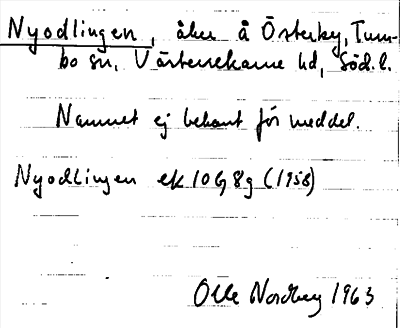 Nyodlingen, åker å Österby, Tum-
bo sn, Västerrekarne hd, Söd. l.
Namnet ej bekant för meddel.
Nyodlingen ek 10G8g (1958)
Olle Nordberg 1963